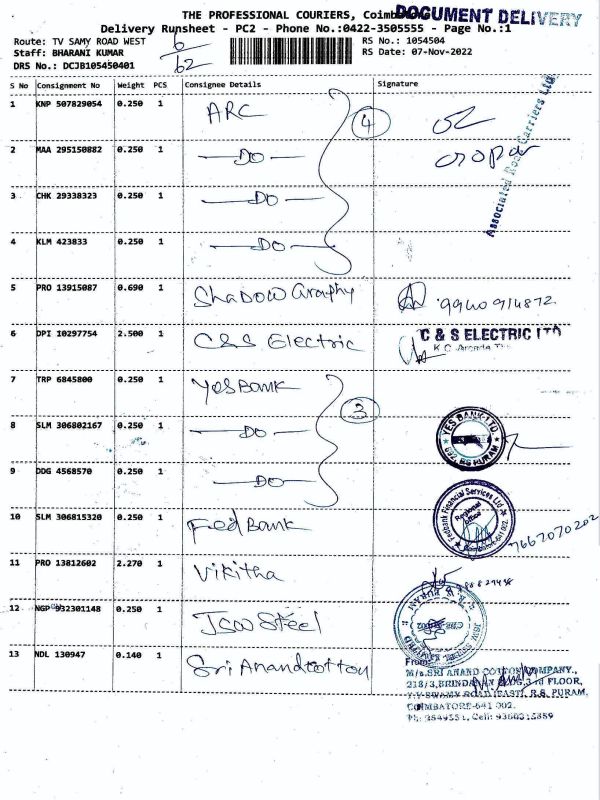 THE PROFESSIONAL COURIERS, Coimbatore
DOCUMENT DELIVERY
Delivery Runsheet - PC2 - Phone No.:0422-3505555 - Page No.:1
Route: TV SAMY ROAD WEST
6/62
RS No.: 1054504
Staff: BHARANI KUMAR
RS Date: 07-Nov-2022
DRS No.: DCJB105450401
S No Consignment No Weight PCS Consignee Details Signature
1 KNP 507829054 0.250 1 ARC
4
2 MAA 295150882 0.250 1 DO
Associated Road Carriers Ltd
3 CHK 29338323 0.250 1 DO
4 KLM 423833 0.250 1 DO
5 PRO 13915087 0.690 1 Shadow Graphy 9940914872
6 DPI 10297754 2.500 1 C&S Electric C & S ELECTRIC LTD
7 TRP 6845800 0.250 1 Yes Bank
3
8 SLM 306802167 0.250 1 DO
YES BANK LTD
RS PURAM
9 DDG 4568570 0.250 1 DO
Fedbank Financial Services Ltd
Regional Office
Coimbatore-641 002
10 SLM 306815320 0.250 1 Fed Bank 7667070202
11 PRO 13812602 2.270 1 Vikitha
12 NGP 932301148 0.250 1 JSW Steel
13 NDL 130947 0.140 1 Sri Anand cotton
From:
M/s.SRI ANAND COTTON COMPANY.,
218/3,BRINDAVAN BLDG,3rd FLOOR,
T.V.SWAMY ROAD (EAST), R.S. PURAM,
COIMBATORE-641 002.